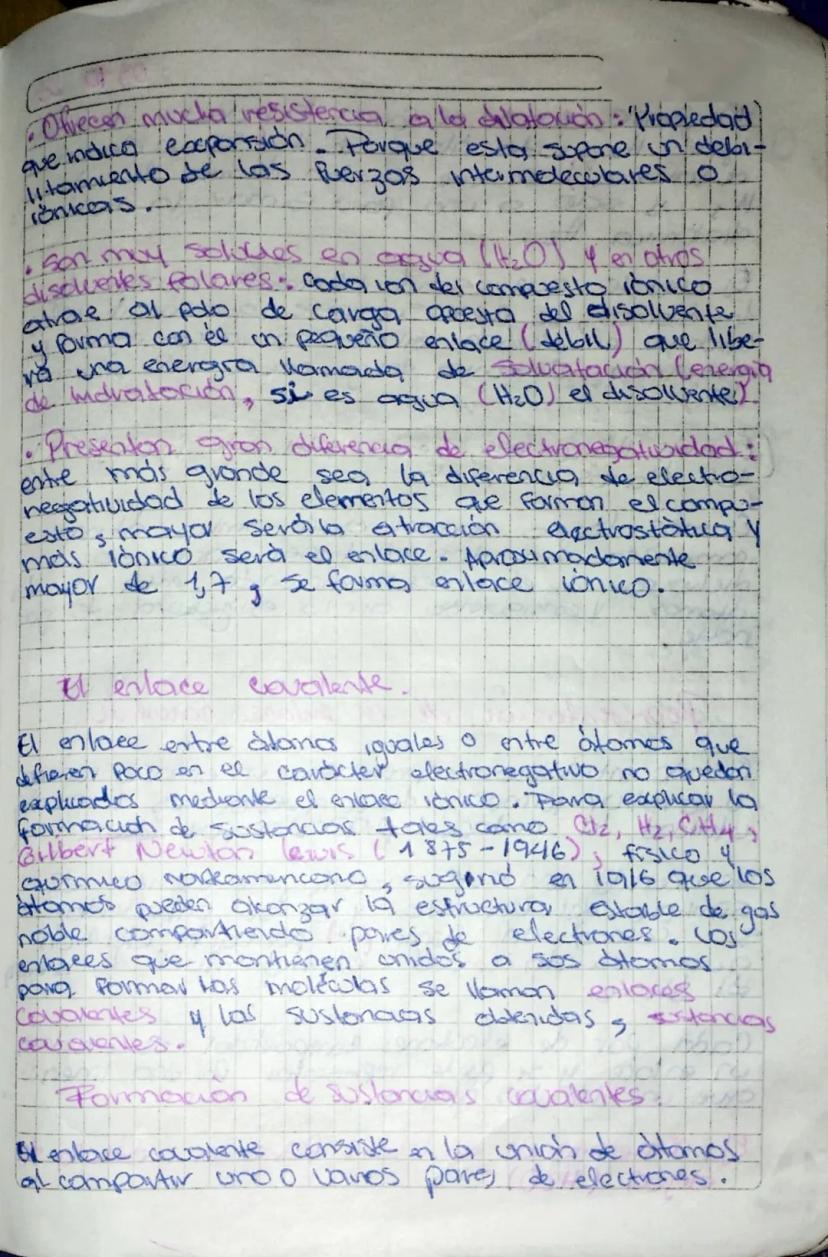 · Ofrecen mucha resistencia a la dilatación: Propiedad
que indica expansión. Porque esta supone un debi-
litamiento de las fuerzas intermoleculares o
iónicas.
· Son muy solubles en agua (H₂O) y en otros
disolventes polares: Cada ion del compuesto iónico
atrae al polo de carga opuesta del disolvente
y forma con él un pequeño enlace (débil) que libe-
ra una energía llamada de solvatación (energía
de hidratación, si es agua (H₂O) el disolvente)
· Presentan gran diferencia de electronegatividad:
entre más grande sea la diferencia de electro-
negatividad de los elementos que forman el compu-
esto, mayor será la atracción electrostática y
más iónico será el enlace. Aproximadamente
mayor de 1,7, se forma enlace iónico.
El enlace covalente.
El enlace entre átomos iguales o entre átomos que
difieren poco en el carácter electronegativo no quedan
explicados mediante el enlace iónico. Para explicar la
formación de sustancias tales como Cl₂, H₂, CH₄,
Gilbert Newton Lewis (1875-1946), físico y
químico norteamericano, sugirió en 1916 que los
átomos pueden alcanzar la estructura estable de gas
noble compartiendo pares de electrones. Los
enlaces que mantienen unidos a sos átomos
para formar las moléculas se llaman enlaces
covalentes y las sustancias obtenidas, sustancias
covalentes.
Formación de sustancias covalentes.
El enlace covalente consiste en la unión de átomos
al compartir uno o varios pares de electrones.